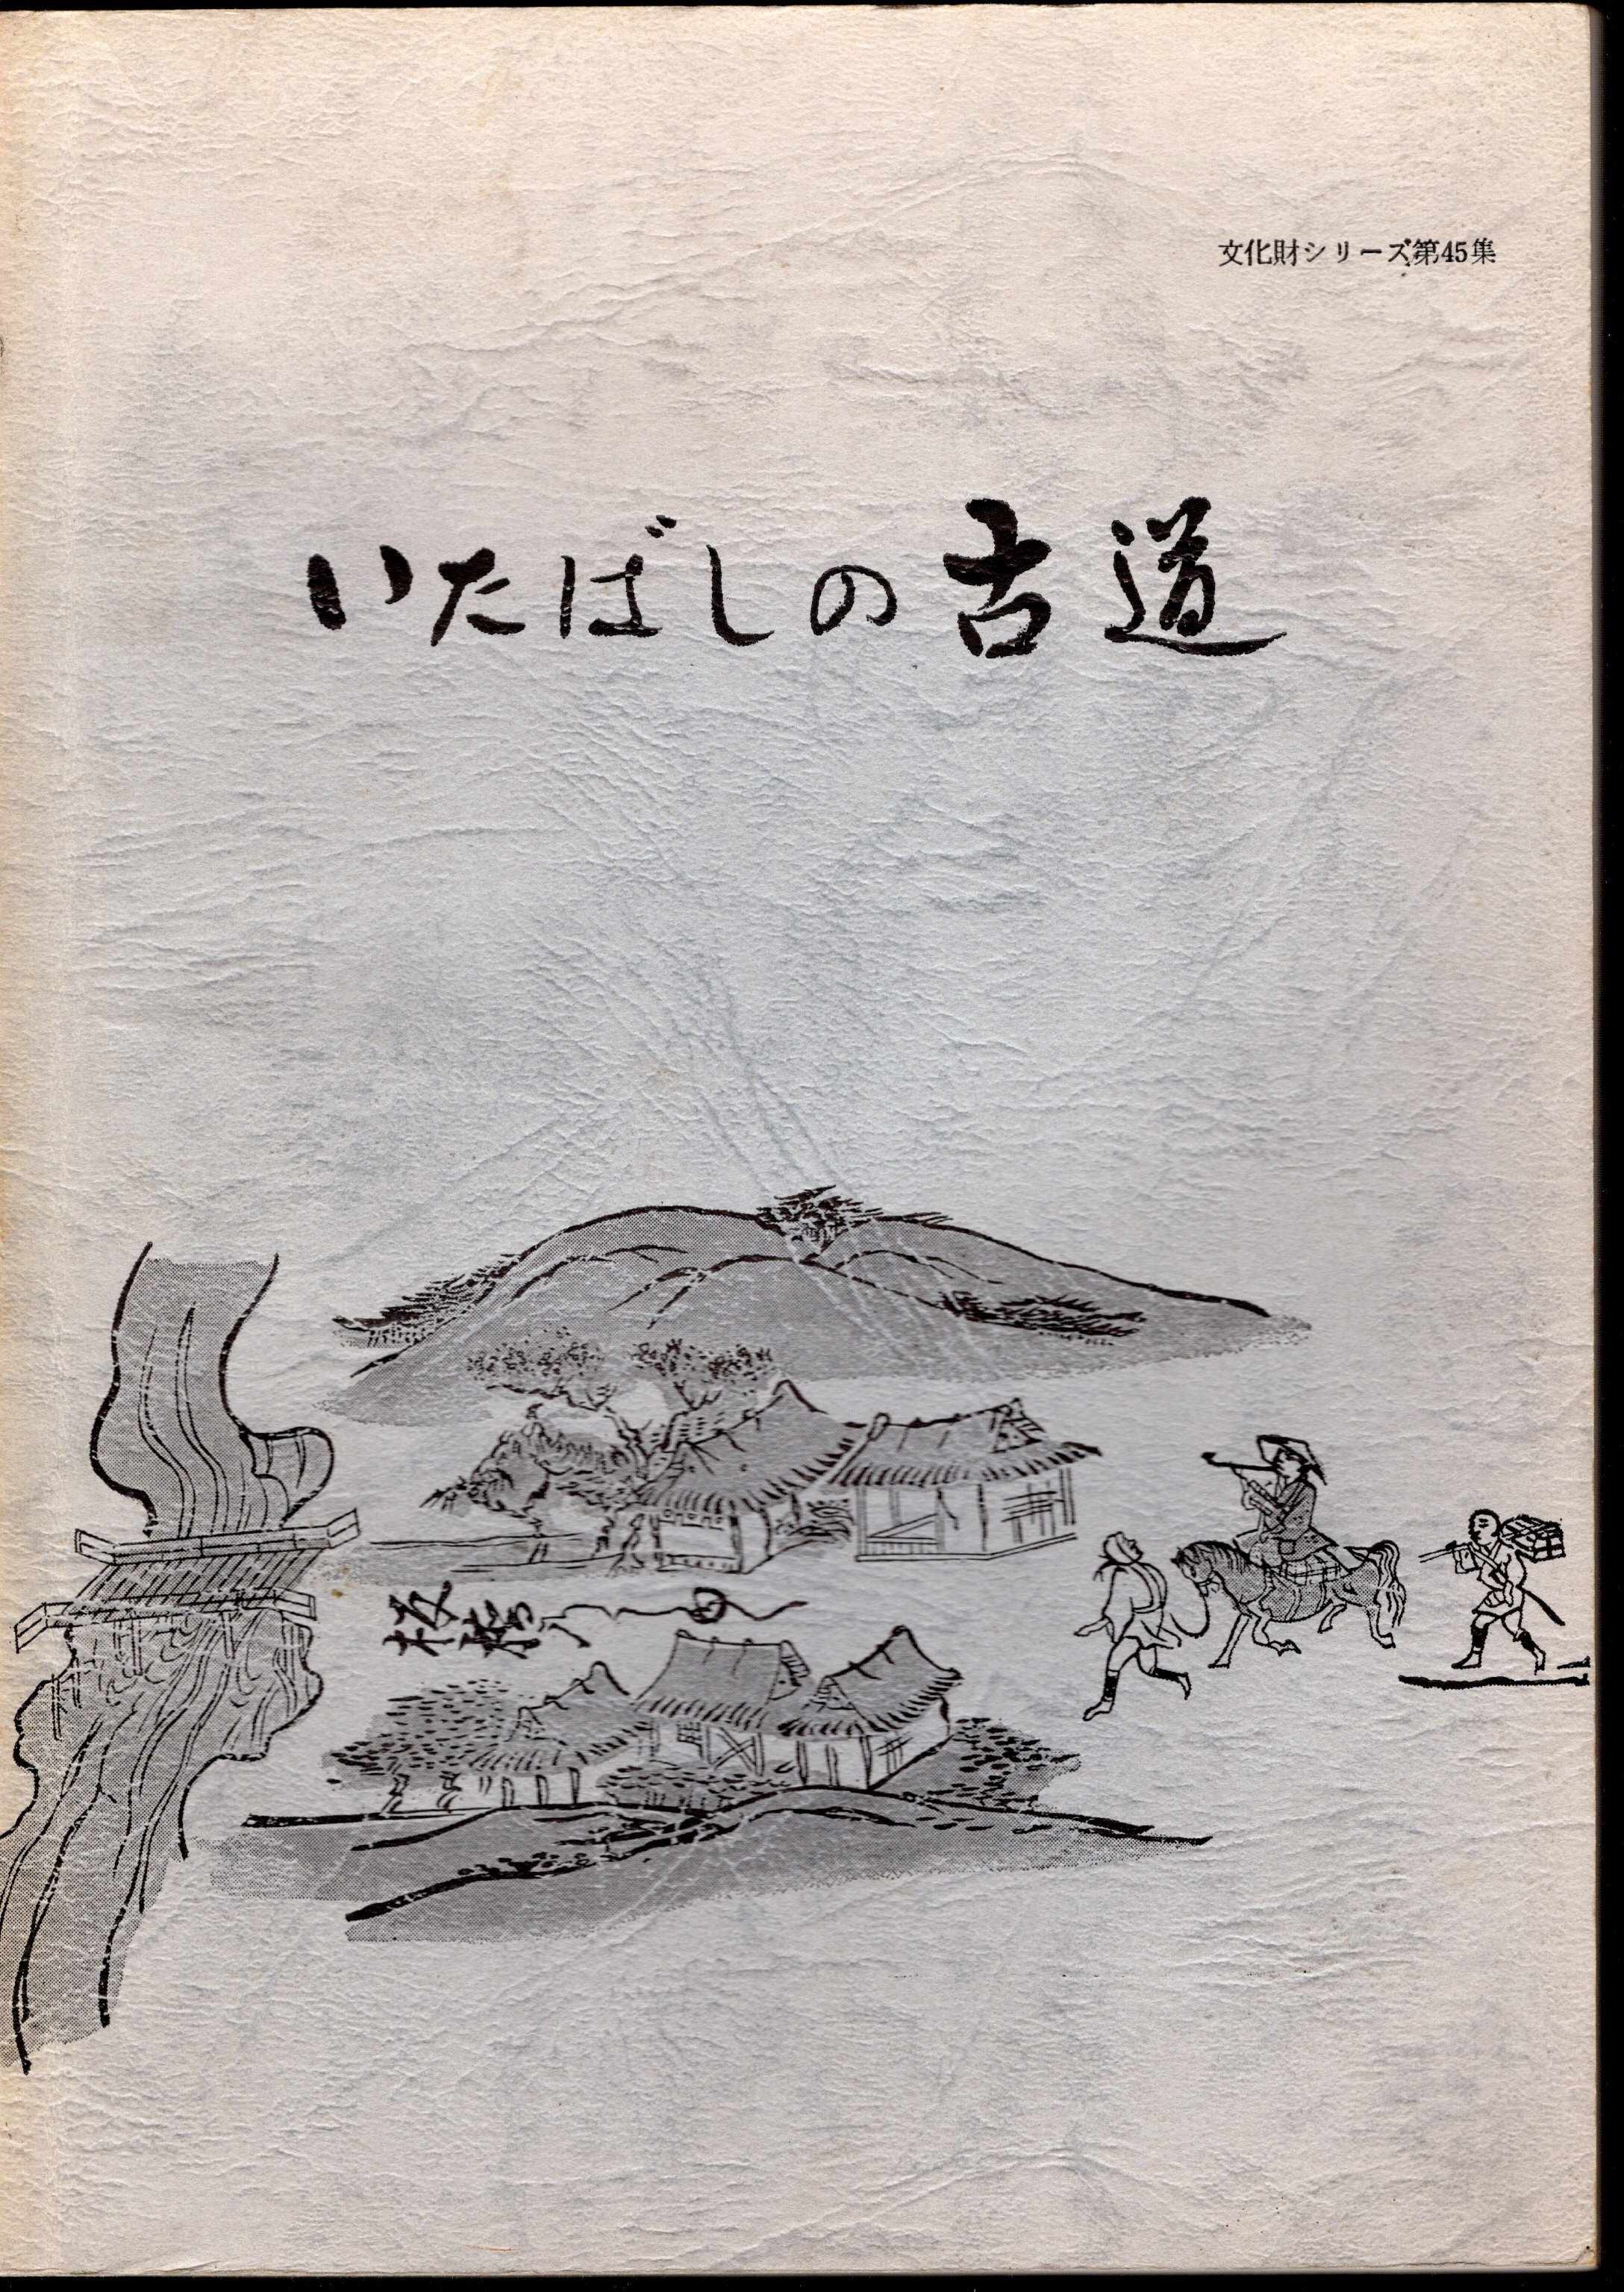 文化財シリーズ第45集
いたばしの古道
板橋